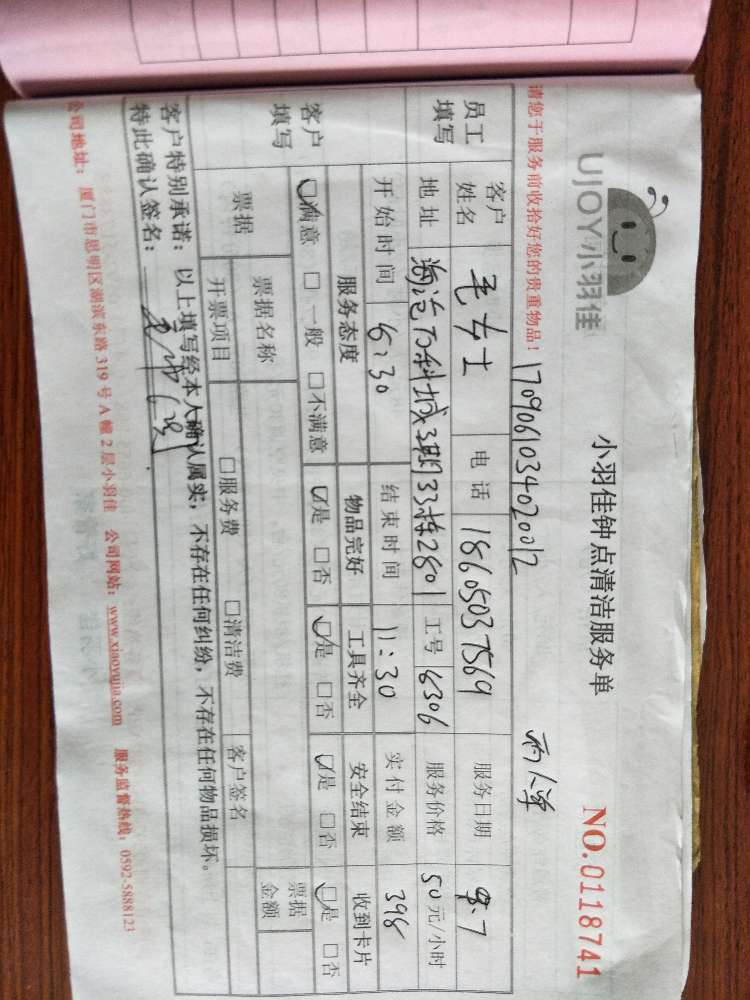 UJOY小羽佳
小羽佳钟点清洁服务单
NO.0118741
请您于服务前收拾好您的贵重物品！
1709061034020012
两人单
员工填写
客户姓名 毛女士 电话 18605037569 服务日期 9.7
地址 海沧万科城3期33栋2801 工号 6306 服务价格 50元/小时
开始时间 6:30 结束时间 11:30 实付金额 398
客户填写
服务态度 物品完好 工具齐全 安全结束 收到卡片
☑满意 □一般 □不满意 ☑是 □否 ☑是 □否 ☑是 □否 ☑是 □否
票据 票据名称 票据金额
开票项目 □服务费 □清洁费 客户签名
客户特别承诺：以上填写经本人确认属实，不存在任何纠纷，不存在任何物品损坏。
特此确认签名：
公司地址：厦门市思明区湖滨东路319号A幢2层小羽佳 公司网站：www.xiaoyujia.com 服务监督热线：0592-5888123